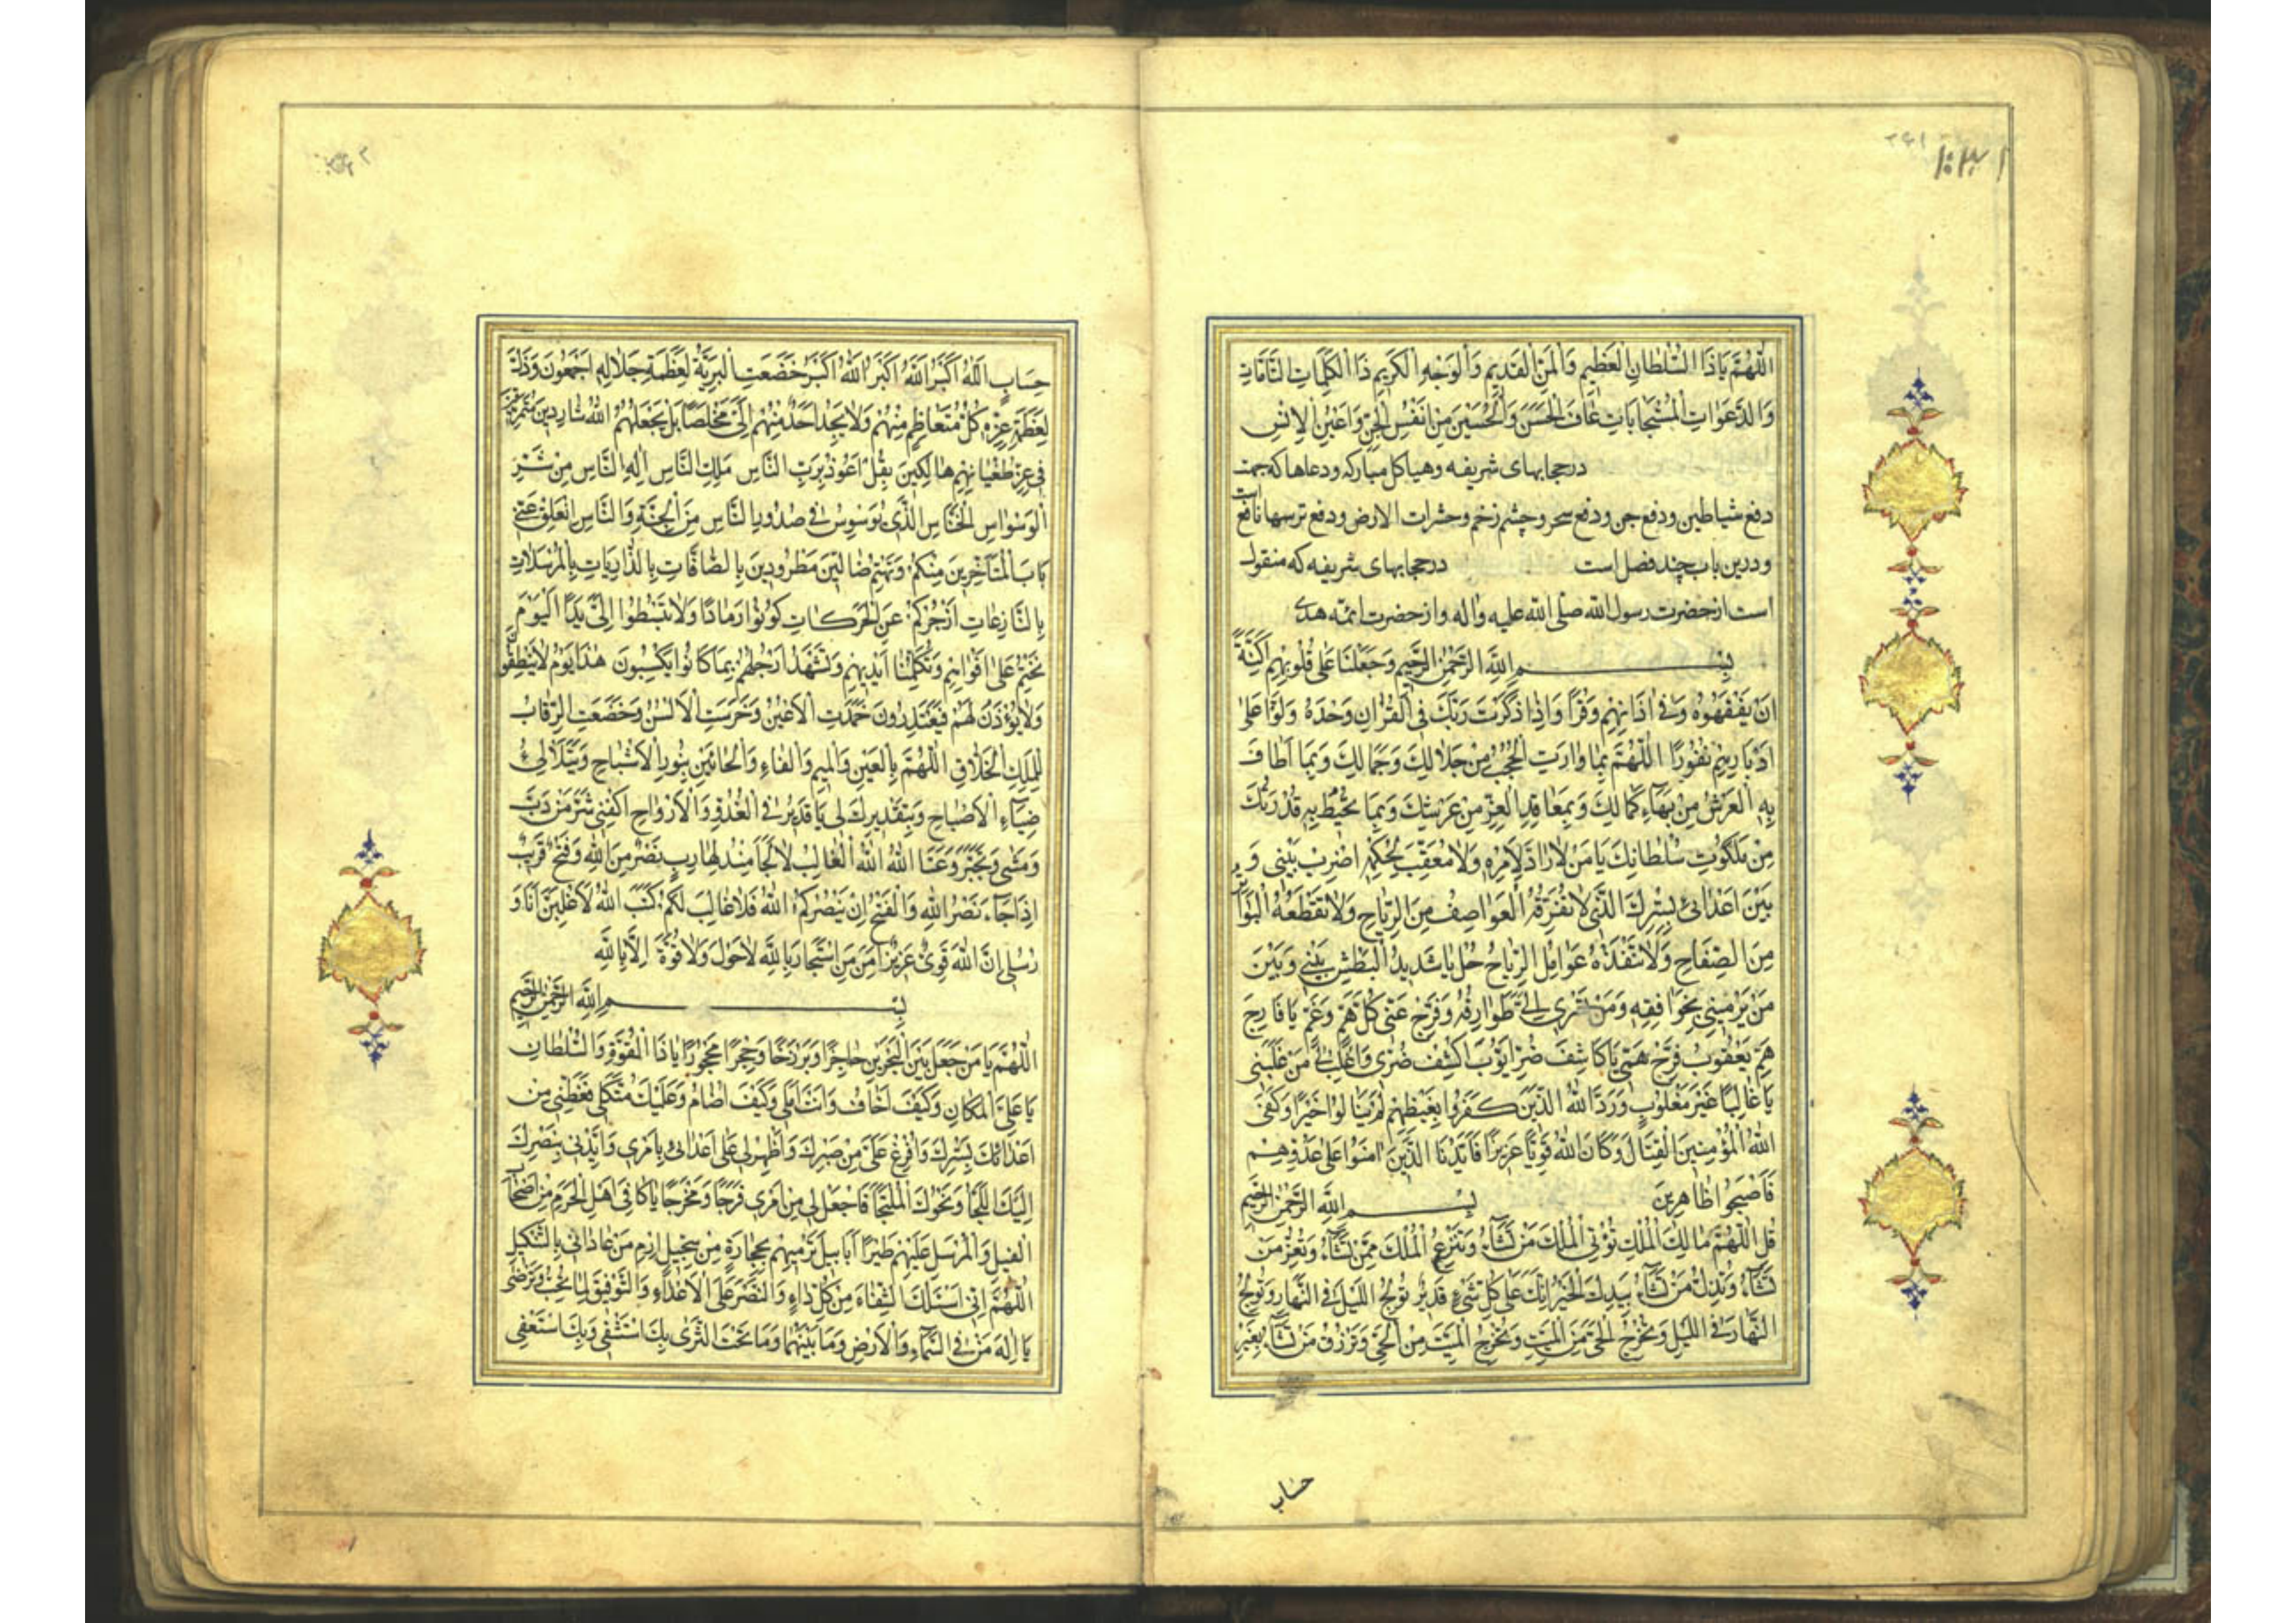 ۲۶۱
اللّٰهُمَّ يَا ذَا السُّلْطَانِ الْعَظِيمِ وَالْمَنِّ الْقَدِيمِ وَالْوَجْهِ الْكَرِيمِ ذَا الْكَلِمَاتِ التَّامَّاتِ
وَالدَّعَوَاتِ الْمُسْتَجَابَاتِ عَافِ الْحَسَنَ وَالْحُسَيْنَ مِنْ اَنْفُسِ الْجِنِّ وَاَعْيُنِ الْاِنْسِ
درحجابهای شریفه وهیاکل مبارکه ودعاها که جهت
دفع شیاطین ودفع جن ودفع سحر وچشم زخم وحشرات الارض ودفع ترسها نافع است
ودرین باب چند فصل است درحجابهای شریفه که منقول
است از حضرت رسول الله صلی الله علیه واله واز حضرت ائمّه هدی
بِسْمِ اللّٰهِ الرَّحْمٰنِ الرَّحِيمِ وَجَعَلْنَا عَلٰى قُلُوبِهِمْ اَكِنَّةً
اَنْ يَفْقَهُوهُ وَفِى اٰذَانِهِمْ وَقْرًا وَاِذَا ذَكَرْتَ رَبَّكَ فِى الْقُرْاٰنِ وَحْدَهُ وَلَّوْا عَلٰى
اَدْبَارِهِمْ نُفُورًا اَللّٰهُمَّ بِمَا وَارَتِ الْحُجُبُ مِنْ جَلَالِكَ وَجَمَالِكَ وَبِمَا اَطَافَ
بِهِ الْعَرْشُ مِنْ بَهَاءِ كَمَالِكَ وَبِمَعَاقِدِ الْعِزِّ مِنْ عَرْشِكَ وَبِمَا تُحِيطُ بِهِ قُدْرَتُكَ
مِنْ مَلَكُوتِ سُلْطَانِكَ يَا مَنْ لَا رَادَّ لِاَمْرِهِ وَلَا مُعَقِّبَ لِحُكْمِهِ اضْرِبْ بَيْنِى وَ
بَيْنَ اَعْدَائِى بِسِتْرِكَ الَّذِى لَا تُفَرِّقُهُ الْعَوَاصِفُ مِنَ الرِّيَاحِ وَلَا تَقْطَعُهُ الْبَوَاتِرُ
مِنَ الصِّفَاحِ وَلَا تَنْفُذُهُ عَوَامِلُ الرِّمَاحِ حُلْ يَا شَدِيدَ الْبَطْشِ بَيْنِى وَبَيْنَ
مَنْ يَرْمِينِى بِخَوَافِقِهِ وَمَنْ تَسْرِى اِلَىَّ طَوَارِقُهُ وَفَرِّجْ عَنِّى كُلَّ هَمٍّ وَغَمٍّ يَا فَارِجَ
هَمِّ يَعْقُوبَ فَرِّجْ هَمِّى يَا كَاشِفَ ضُرِّ اَيُّوبَ اكْشِفْ ضُرِّى وَاغْلِبْ لِى مَنْ غَلَبَنِى
يَا غَالِبًا غَيْرَ مَغْلُوبٍ وَرَدَّ اللّٰهُ الَّذِينَ كَفَرُوا بِغَيْظِهِمْ لَمْ يَنَالُوا خَيْرًا وَكَفَى
اللّٰهُ الْمُؤْمِنِينَ الْقِتَالَ وَكَانَ اللّٰهُ قَوِيًّا عَزِيزًا فَاَيَّدْنَا الَّذِينَ اٰمَنُوا عَلٰى عَدُوِّهِمْ
فَاَصْبَحُوا ظَاهِرِينَ بِسْمِ اللّٰهِ الرَّحْمٰنِ الرَّحِيمِ
قُلِ اللّٰهُمَّ مَالِكَ الْمُلْكِ تُؤْتِى الْمُلْكَ مَنْ تَشَاءُ وَتَنْزِعُ الْمُلْكَ مِمَّنْ تَشَاءُ وَتُعِزُّ مَنْ
تَشَاءُ وَتُذِلُّ مَنْ تَشَاءُ بِيَدِكَ الْخَيْرُ اِنَّكَ عَلٰى كُلِّ شَىْءٍ قَدِيرٌ تُولِجُ اللَّيْلَ فِى النَّهَارِ وَتُولِجُ
النَّهَارَ فِى اللَّيْلِ وَتُخْرِجُ الْحَىَّ مِنَ الْمَيِّتِ وَتُخْرِجُ الْمَيِّتَ مِنَ الْحَىِّ وَتَرْزُقُ مَنْ تَشَاءُ بِغَيْرِ
حساب
حِسَابٍ اَللّٰهُ اَكْبَرُ اَللّٰهُ اَكْبَرُ اَللّٰهُ اَكْبَرُ خَضَعَتِ الْبَرِيَّةُ لِعَظَمَةِ جَلَالِهِ اَجْمَعُونَ وَذَلَّ
لِعَظَمَةِ عِزِّهِ كُلُّ مُتَعَاظِمٍ مِنْهُمْ وَلَا يَجِدُ اَحَدٌ مِنْهُمْ اِلَىَّ مَخْلَصًا بَلْ يَجْعَلُهُمُ اللّٰهُ شَارِدِينَ
فِى عِزِّ طُغْيَانِهِمْ هَالِكِينَ بِقُلْ اَعُوذُ بِرَبِّ النَّاسِ مَلِكِ النَّاسِ اِلٰهِ النَّاسِ مِنْ شَرِّ
الْوَسْوَاسِ الْخَنَّاسِ الَّذِى يُوَسْوِسُ فِى صُدُورِ النَّاسِ مِنَ الْجِنَّةِ وَالنَّاسِ انْغَلَقَ عَنِّى
بَابُ الْمُتَاَخِّرِينَ مِنْكُمْ وَتِهْتُمْ ضَالِّينَ مَطْرُودِينَ بِالصَّافَّاتِ بِالذَّارِيَاتِ بِالْمُرْسَلَاتِ
بِالنَّازِعَاتِ اَزْجُرُكُمْ عَنِ الْحَرَكَاتِ كُونُوا رَمَادًا وَلَا تَبْسُطُوا اِلَىَّ يَدًا اَلْيَوْمَ
نَخْتِمُ عَلٰى اَفْوَاهِهِمْ وَتُكَلِّمُنَا اَيْدِيهِمْ وَتَشْهَدُ اَرْجُلُهُمْ بِمَا كَانُوا يَكْسِبُونَ هٰذَا يَوْمُ لَا يَنْطِقُونَ
وَلَا يُؤْذَنُ لَهُمْ فَيَعْتَذِرُونَ خَمَدَتِ الْاَعْيُنُ وَخَرِسَتِ الْاَلْسُنُ وَخَضَعَتِ الرِّقَابُ
لِلْمَلِكِ الْخَلَّاقِ اَللّٰهُمَّ بِالْعَيْنِ وَالْمِيمِ وَالْفَاءِ وَالْحَائَيْنِ بِنُورِ الْاَشْبَاحِ وَبِتَلَاْلُؤِ
ضِيَاءِ الْاَصْبَاحِ وَبِتَقْدِيرِكَ لِى يَا قَدِيرُ فِى الْغُدُوِّ وَالْاَرْوَاحِ اكْفِنِى شَرَّ مَنْ دَبَّ
وَمَشٰى وَتَجَبَّرَ وَعَتَا اَللّٰهُ اَللّٰهُ الْغَالِبُ لَا مَلْجَأَ مِنْهُ لِهَارِبٍ نَصْرٌ مِنَ اللّٰهِ وَفَتْحٌ قَرِيبٌ
اِذَا جَاءَ نَصْرُ اللّٰهِ وَالْفَتْحُ اِنْ يَنْصُرْكُمُ اللّٰهُ فَلَا غَالِبَ لَكُمْ كَتَبَ اللّٰهُ لَاَغْلِبَنَّ اَنَا وَ
رُسُلِى اِنَّ اللّٰهَ قَوِىٌّ عَزِيزٌ اَمِنَ مَنِ اسْتَجَارَ بِاللّٰهِ لَا حَوْلَ وَلَا قُوَّةَ اِلَّا بِاللّٰهِ
بِسْمِ اللّٰهِ الرَّحْمٰنِ الرَّحِيمِ
اَللّٰهُمَّ يَا مَنْ جَعَلَ بَيْنَ الْبَحْرَيْنِ حَاجِزًا وَبَرْزَخًا وَحِجْرًا مَحْجُورًا يَا ذَا الْقُوَّةِ وَالسُّلْطَانِ
يَا عَلِىَّ الْمَكَانِ وَكَيْفَ اَخَافُ وَاَنْتَ اَمَلِى وَكَيْفَ اُضَامُ وَعَلَيْكَ مُتَّكَلِى فَغَطِّنِى مِنْ
اَعْدَائِكَ بِسِتْرِكَ وَاَفْرِغْ عَلَىَّ مِنْ صَبْرِكَ وَاَظْهِرْنِى عَلٰى اَعْدَائِى بِاَمْرِى وَاَيِّدْنِى بِنَصْرِكَ
اِلَيْكَ اللَّجَأُ وَنَحْوَكَ الْمُلْتَجَأُ فَاجْعَلْ لِى مِنْ اَمْرِى فَرَجًا وَمَخْرَجًا يَا كَافِىَ اَهْلِ الْحَرَمِ مِنْ اَصْحَابِ
الْفِيلِ وَالْمُرْسِلَ عَلَيْهِمْ طَيْرًا اَبَابِيلَ تَرْمِيهِمْ بِحِجَارَةٍ مِنْ سِجِّيلٍ اِرْمِ مَنْ عَادَانِى بِالتَّنْكِيلِ
اَللّٰهُمَّ اِنِّى اَسْئَلُكَ الشِّفَاءَ مِنْ كُلِّ دَاءٍ وَالنَّصْرَ عَلَى الْاَعْدَاءِ وَالتَّوْفِيقَ لِمَا تُحِبُّ وَتَرْضٰى
يَا اِلٰهَ مَنْ فِى السَّمَاءِ وَالْاَرْضِ وَمَا بَيْنَهُمَا وَمَا تَحْتَ الثَّرٰى بِكَ اَسْتَشْفِى وَبِكَ اَسْتَعْفِى